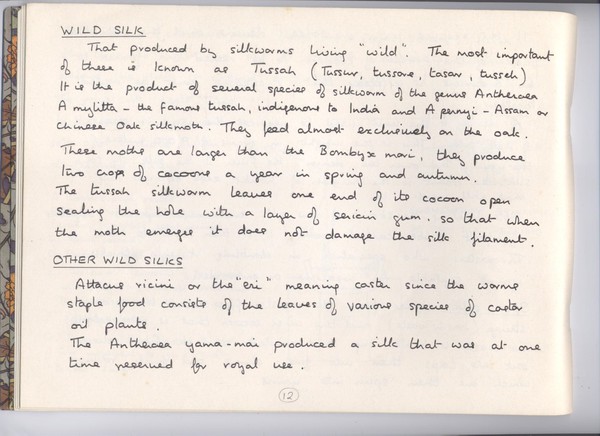 WILD SILK
That produced by silkworms living "wild". The most important
of these is known as Tussah (Tussur, tussore, tasar, tusseh)
It is the product of several species of silkworm of the genus Antheraea
A mylitta - the famous tussah, indigenous to India and A pernyi - Assam or
Chinese Oak silkmoth. They feed almost exclusively on the oak.
These moths are larger than the Bombyx mori, they produce
two crops of cocoons a year in spring and autumn.
The tussah silkworm leaves one end of its cocoon open
sealing the hole with a layer of sericin gum. so that when
the moth emerges it does not damage the silk filament.
OTHER WILD SILKS
Attacus ricini or the "eri" meaning caster since the worms
staple food consists of the leaves of various species of castor
oil plants.
The Antheraea yama-mai produced a silk that was at one
time reserved for royal use.
12